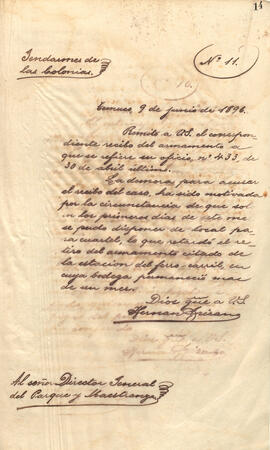 14
Jendarmes de
las Colonias.
Nº 11.
Temuco, 9 de junio de 1896.
Remito a US. el correspon
diente recibo del armamento a
que se refiere su oficio nº 433 de
30 de abril último.
La demora para acusar
el recibo del caso, ha sido motivada
por la circunstancia de que sol
o en los primeros dias de este mes
se pudo disponer de local pa
ra cuartel, lo que retardó el re
tiro del armamento citado de
la estacion del ferro-carril, en
cuya bodega permaneció mas
de un mes.
Dios gue a US.
Hernan
Al señor Director Jeneral
del Parque y Maestranza.